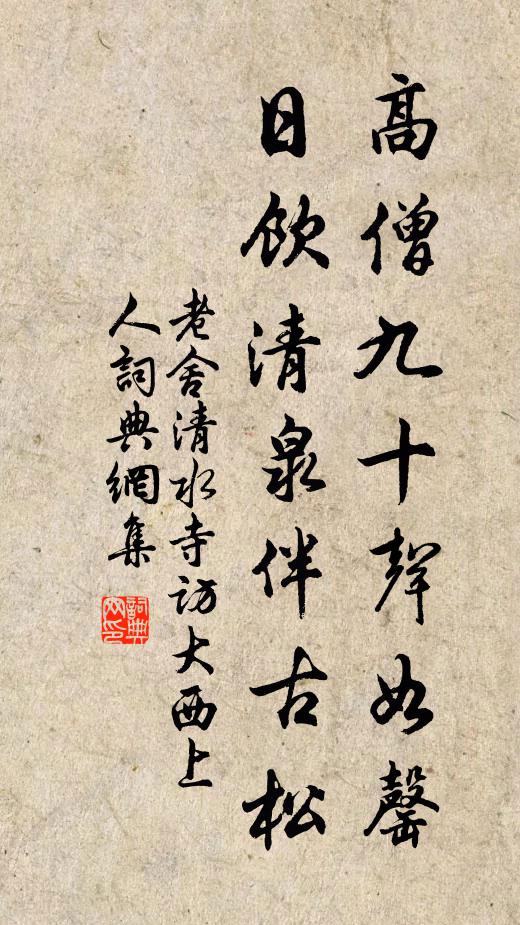 高僧九十聲如罄
日飲清泉伴古松
老舍清水寺訪大西上
人詞典網集
詞典
网印